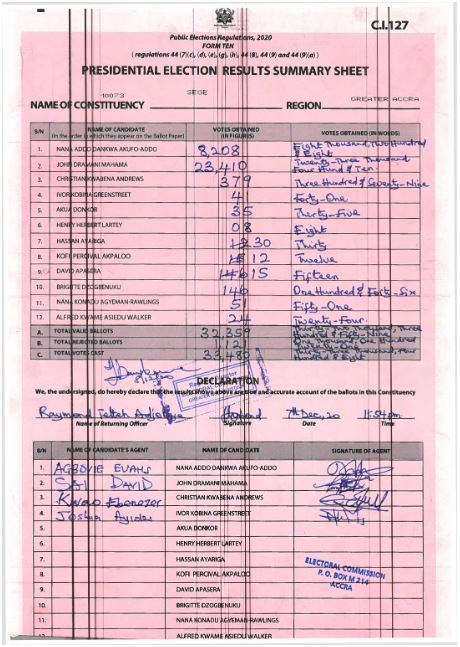 C.I.127
Public Elections Regulations, 2020
FORM TEN
( regulations 44 (7)(c), (d), (e), (g), (h), 44 (8), 44 (9) and 44 (9)(a) )
PRESIDENTIAL ELECTION RESULTS SUMMARY SHEET
10073 SEGE GREATER ACCRA
NAME OF CONSTITUENCY REGION
S/N NAME OF CANDIDATE (In the order in which they appear on the Ballot Paper) VOTES OBTAINED (IN FIGURES) VOTES OBTAINED (IN WORDS)
1. NANA ADDO DANKWA AKUFO-ADDO 8,208 Eight Thousand, Two Hundred & Eight
2. JOHN DRAMANI MAHAMA 23,410 Twenty-Three Thousand Four Hund & Ten
3. CHRISTIAN KWABENA ANDREWS 379 Three Hundred & Seventy-Nine
4. IVOR KOBINA GREENSTREET 41 Forty-One
5. AKUA DONKOR 35 Thirty-Five
6. HENRY HERBERT LARTEY 08 Eight
7. HASSAN AYARIGA 30 Thirty
8. KOFI PERCIVAL AKPALOO 12 Twelve
9. DAVID APASERA 15 Fifteen
10. BRIGITTE DZOGBENUKU 146 One Hundred & Forty-Six
11. NANA KONADU AGYEMAN-RAWLINGS 51 Fifty-One
12. ALFRED KWAME ASIEDU WALKER 24 Twenty-Four
A. TOTAL VALID BALLOTS 32,359 Thirty Two Thousand, Three Hundred & Fifty-Nine
B. TOTAL REJECTED BALLOTS 1,121 One Thousand, One Hundred
C. TOTAL VOTES CAST 33,480 Thirty-Three Thousand, Four Hundred & Eight
DECLARATION
We, the undersigned, do hereby declare that the results above are true and accurate account of the ballots in this Constituency
Raymond Tetteh 7th Dec, 20 11:54pm
Name of Returning Officer Signature Date Time
S/N NAME OF CANDIDATE'S AGENT NAME OF CANDIDATE SIGNATURE OF AGENT
1. AGBOVIE EVANS NANA ADDO DANKWA AKUFO-ADDO
2. SAI DAVID JOHN DRAMANI MAHAMA
3. Kwao Ebenezer CHRISTIAN KWABENA ANDREWS
4. Joshua IVOR KOBINA GREENSTREET
5. AKUA DONKOR
6. HENRY HERBERT LARTEY
7. HASSAN AYARIGA
8. KOFI PERCIVAL AKPALOO
9. DAVID APASERA
10. BRIGITTE DZOGBENUKU
11. NANA KONADU AGYEMAN-RAWLINGS
12. ALFRED KWAME ASIEDU WALKER
ELECTORAL COMMISSION
P. O. BOX M 214
ACCRA